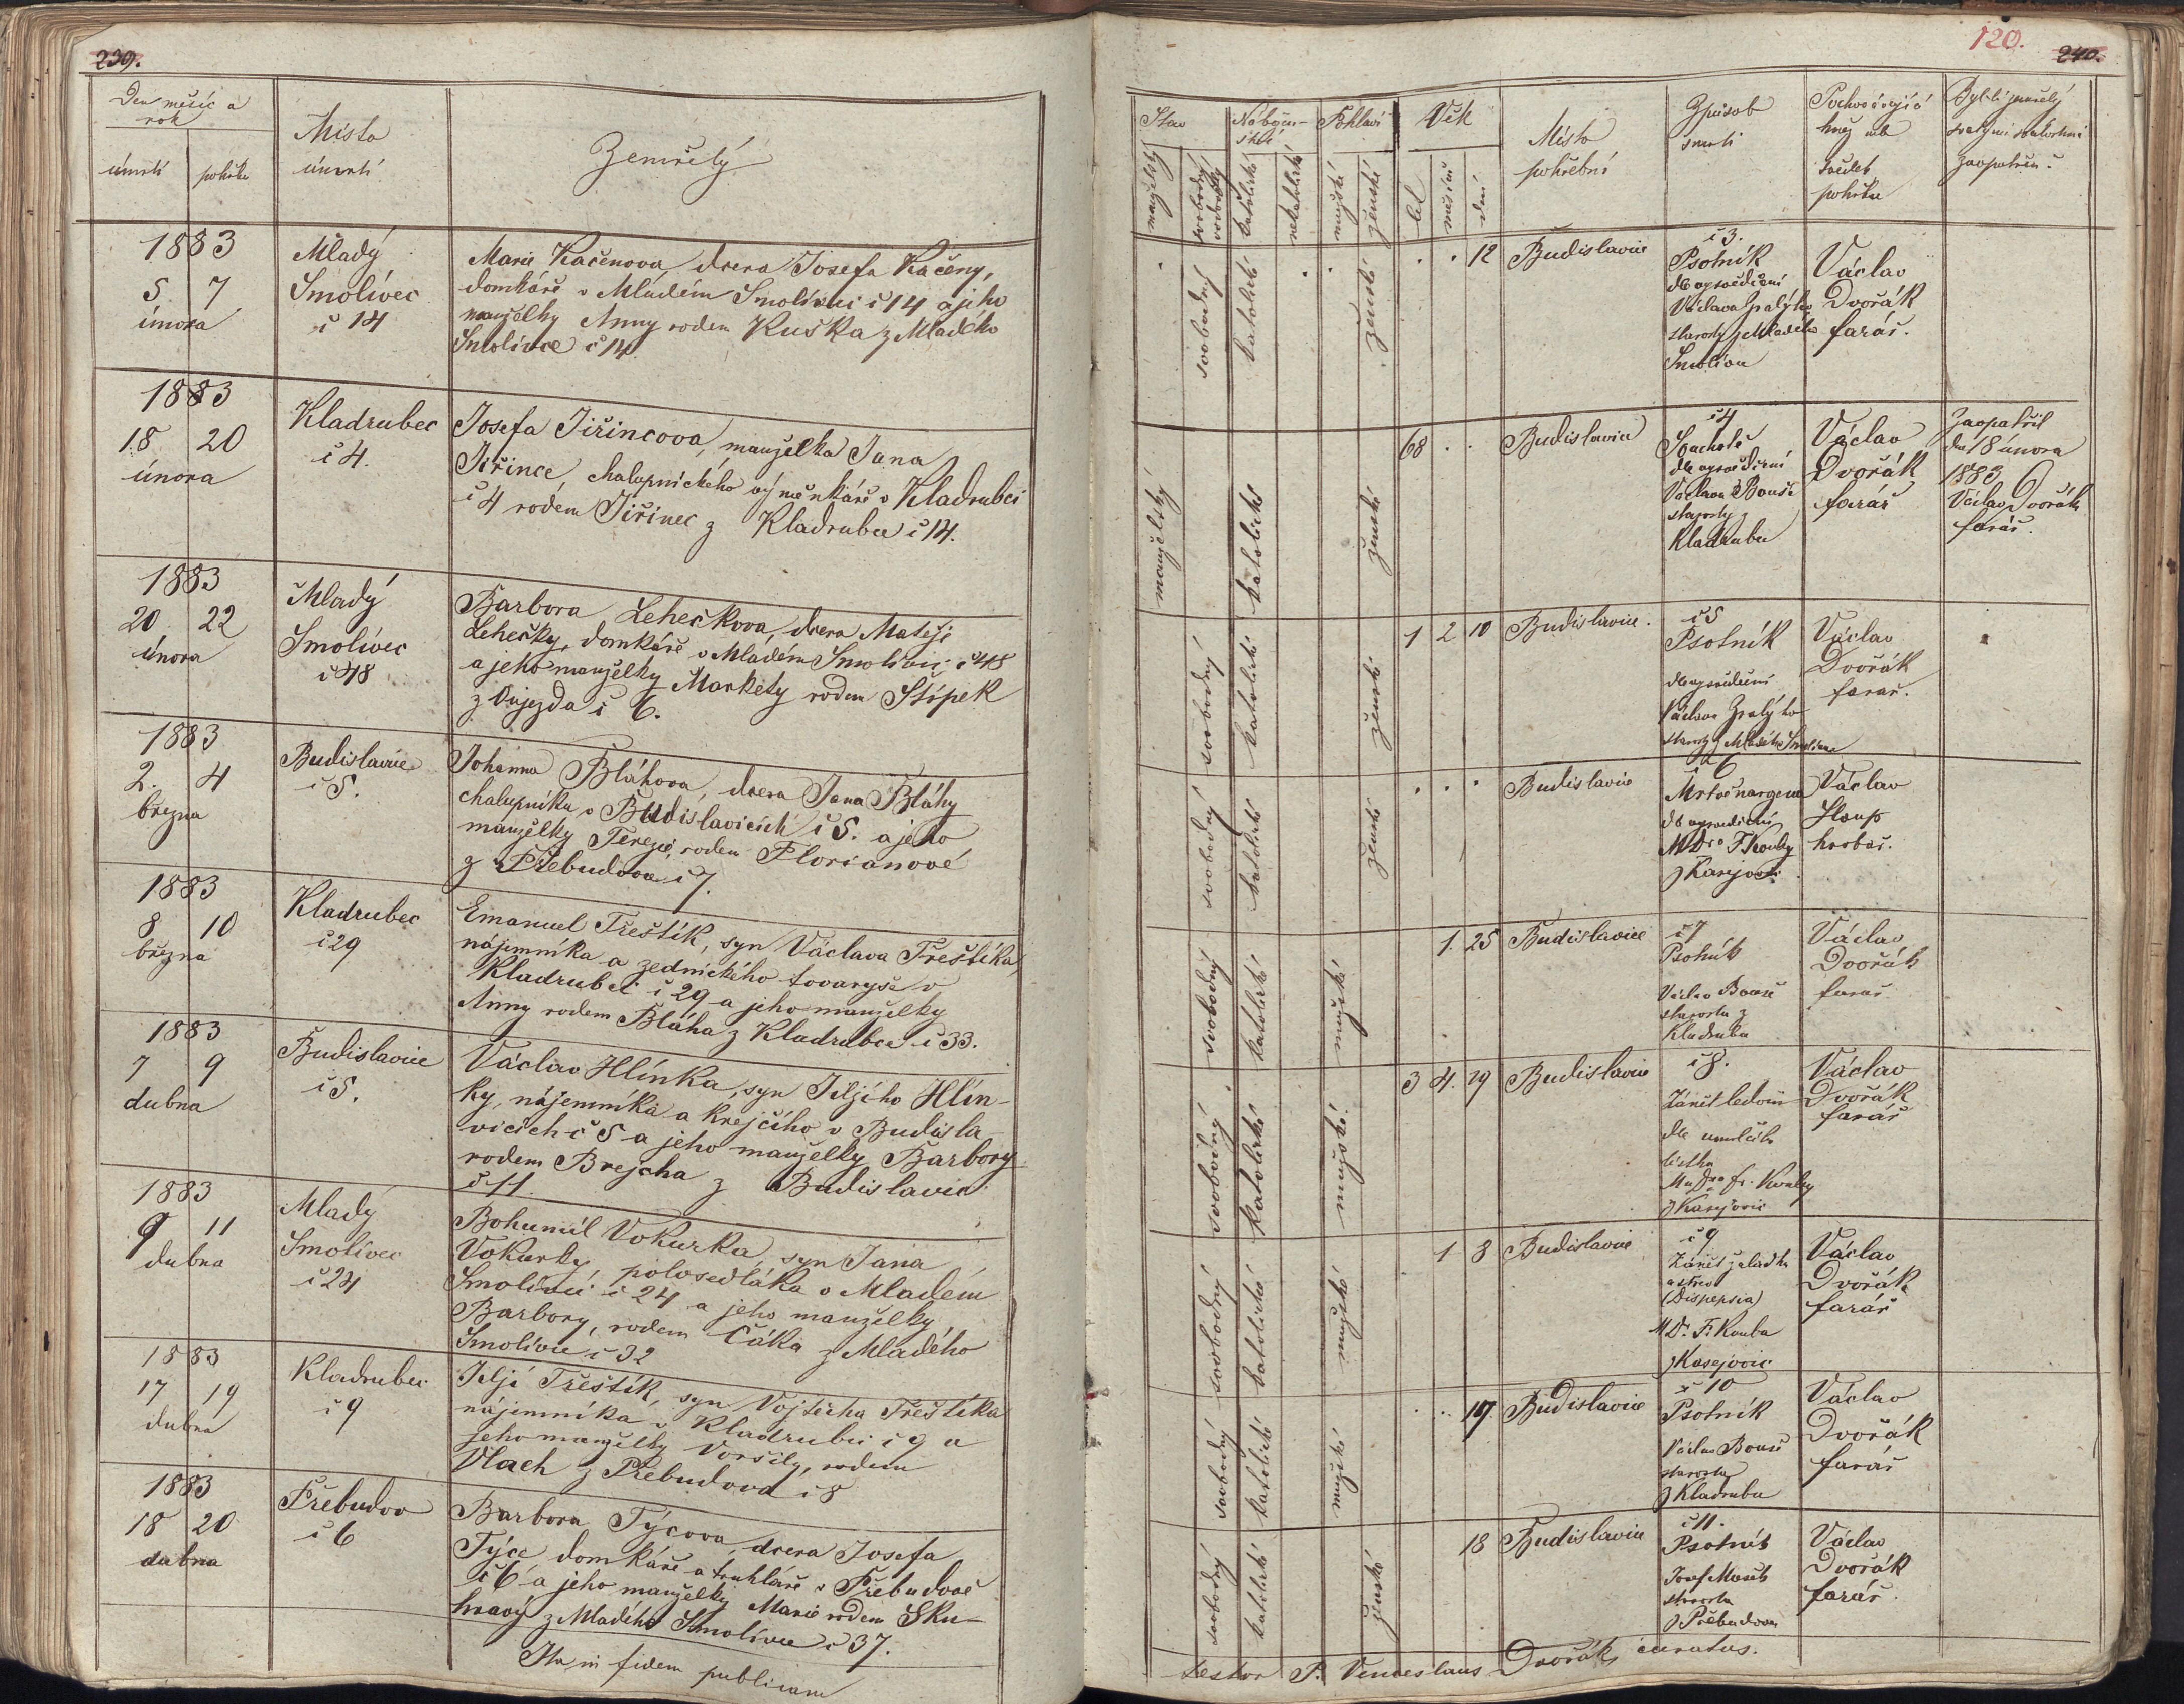 239.
Den měsíc a
rok
úmrtí
pohřbu
Místo
úmrtí
Zemřelý
1883
5 7
února
Mladý
Smolivec
č 14
Marie Kačenova, dcera Josefa Kačeny,
domkáře v Mladém Smolivci č 14 a jeho
manželky Anny rodem Kuska z Mladého
Smolivce č 14.
1883
18 20
února
Kladrubec
č 4.
Josefa Jiřincova, manželka Jana
Jiřince, chalupnického výměnkáře v Kladrubci
č 4 rodem Jiřinec z Kladrubce č 14.
1883
20 22
února
Mladý
Smolivec
č 48
Barbora Leheckova, dcera Matěje
Lehečky, domkáře v Mladém Smolivci č 48
a jeho manželky Markety rodem Stípek
z Oujezda č 6.
1883
2. 4
března
Budislavice
č 5.
Johanna Bláhova, dcera Jana Bláhy
chalupníka v Budislavicích č 5. a jeho
manželky Terezie, rodem Florianové
z Přebudova č 7.
1883
8 10
března
Kladrubec
č 29
Emanuel Třeštík, syn Václava Třeštíka,
nájemníka a zednického tovaryše v
Kladrubci č 29 a jeho manželky
Anny rodem Bláha z Kladrubce č 33.
1883
7 9
dubna
Budislavice
č 5.
Václav Hlínka, syn Jiljího Hlín-
ky, nájemníka a krejčího v Budisla-
vicích č 5 a jeho manželky Barbory
rodem Brejcha z Budislavic
č 11.
1883
9 11
dubna
Mladý
Smolivec
č 24
Bohumil Vokurka, syn Jana
Vokurky, polosedláka v Mladém
Smolivci č 24 a jeho manželky
Barbory, rodem Čáka z Mladého
Smolivce č 32
1883
17 19
dubna
Kladrubec
č 9
Jiljí Třeštík, syn Vojtěcha Třeštíka
nájemníka v Kladrubci č 9 a
jeho manželky Voršily, rodem
Vlach z Přebudova č 8
1883
18 20
dubna
Přebudov
č 6
Barbora Týcova, dcera Josefa
Týce, domkáře a truhláře v Přebudově
č 6 a jeho manželky Marie rodem Sku-
hravý z Mladého Smolivce č 37.
Ita in fidem publicam
120.
240.
Stav
manželský
svobodný
Nábožen-
ství
katolické
nekatolické
Pohlaví
mužské
ženské
Věk
let
měsíců
dní
Místo
pohřební
Způsob
smrti
Pochovávající
kněz neb
svědek
pohřbu
Byl-li zemřelý
svatými svátostmi
zaopatřen?
svobodný
katolické
ženské
12
Budislavice
č 3.
Psotník
dle vysvědčení
Václava Zralýho
starosty z Mladého
Smolivce
Václav
Dvořák
farář.
manželský
katolické
ženské
68
Budislavice
č 4
Souchotě
dle vysvědčení
Václava Bouše
starosty z
Kladrubce
Václav
Dvořák
farář
Zaopatřil
dne 18 února
1883
Václav Dvořák
farář.
svobodný
katolické
ženské
1 2 10
Budislavice.
č 5
Psotník
dle vysvědčení
Václava Zralýho
starosty z Mladého Smolivce
Václav
Dvořák
farář.
svobodný
katolické
ženské
Budislavice
č 6
Mrtvěnarozena
dle vysvědčení
MDra F. Kouby
z Kasejovic
Václav
Houp
hrobař.
svobodný
katolické
mužské
1. 25
Budislavice
č 7
Psotník
Václav Bouše
starosta z
Kladrubce
Václav
Dvořák
farář
svobodný
katolické
mužské
3 4. 19
Budislavice
č 8.
Zánět ledvin
dle umrlčího
lístku
MuDra Fr. Kouby
z Kasejovic
Václav
Dvořák
farář
svobodný
katolické
mužské
1 8
Budislavice
č 9
Zánět žaludku
a střev
(Dispepsia)
MDr. F. Kouba
z Kasejovic
Václav
Dvořák
farář
svobodný
katolické
mužské
17
Budislavice
č 10
Psotník
Václav Bouše
starosta
z Kladrubce
Václav
Dvořák
farář
svobodný
katolické
ženské
18
Budislavice
č 11.
Psotník
Josef Mašek
starosta
z Přebudova
Václav
Dvořák
farář.
testor P. Venceslaus Dvořák, curatus.